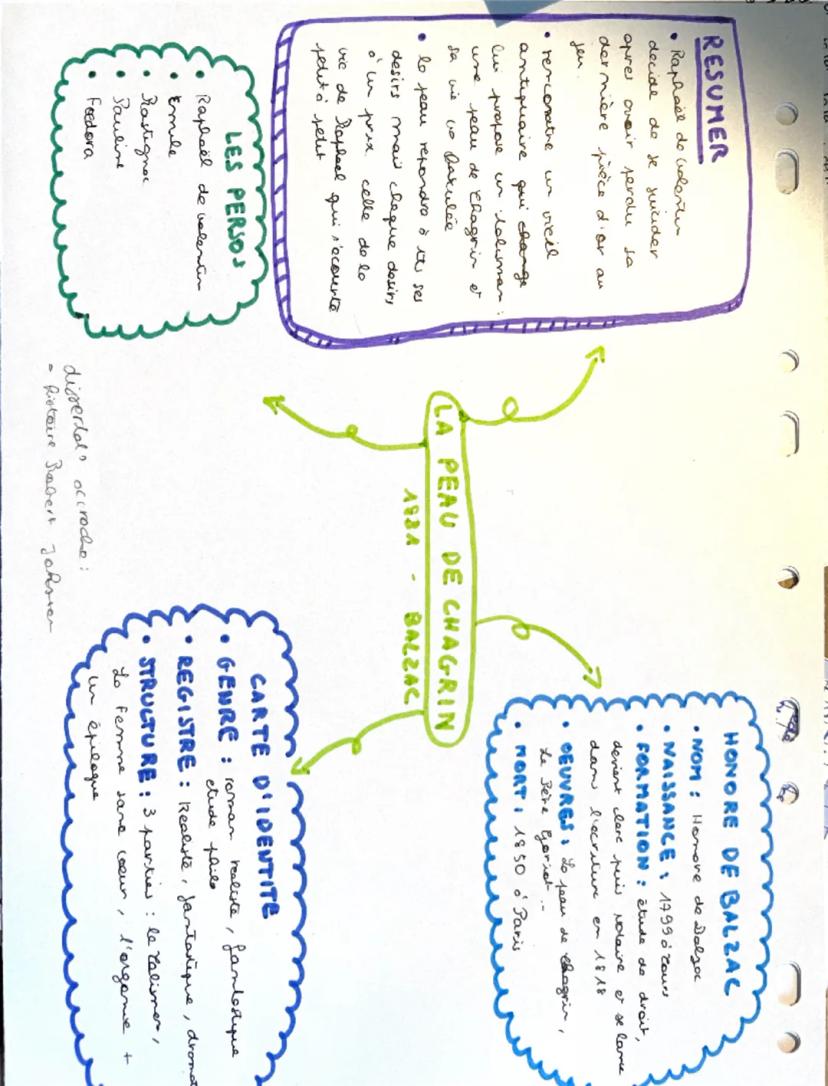 RESUMER
• Raphaël de Valentin
decide de se suicider
apres avoir perdu sa
dernière pièce d'or au
jeu.
• rencontre un vieil
antiquaire qui change
lui propose un talisman :
une peau de chagrin et
sa vie va basculée
• la peau repondra à tts ses
desirs mais chaque desirs
à un prix celle de la
vie de Raphael qui s'ecourte
petit à petit
HONORE DE BALZAC
• NOM : Honore de Balzac
• NAISSANCE : 1799 à Tours
• FORMATION : étude de droit,
devient clerc puis notaire et se lance
dans l'ecriture en 1818
• OEUVRES : La peau de chagrin,
Le Père Goriot...
• MORT : 1850 à Paris
LA PEAU DE CHAGRIN
1831 - BALZAC
LES PERSOS
• Raphaël de Valentin
• Emile
• Rastignac
• Pauline
• Foedora
CARTE D'IDENTITE
• GENRE : roman realiste, fantastique
etude philo
• REGISTRE : Realiste, fantastique, dramat
• STRUCTURE : 3 parties : le talisman,
La Femme sans coeur, l'agonie +
un épilogue
dissertat° accroche :
- histoire Robert Johnson